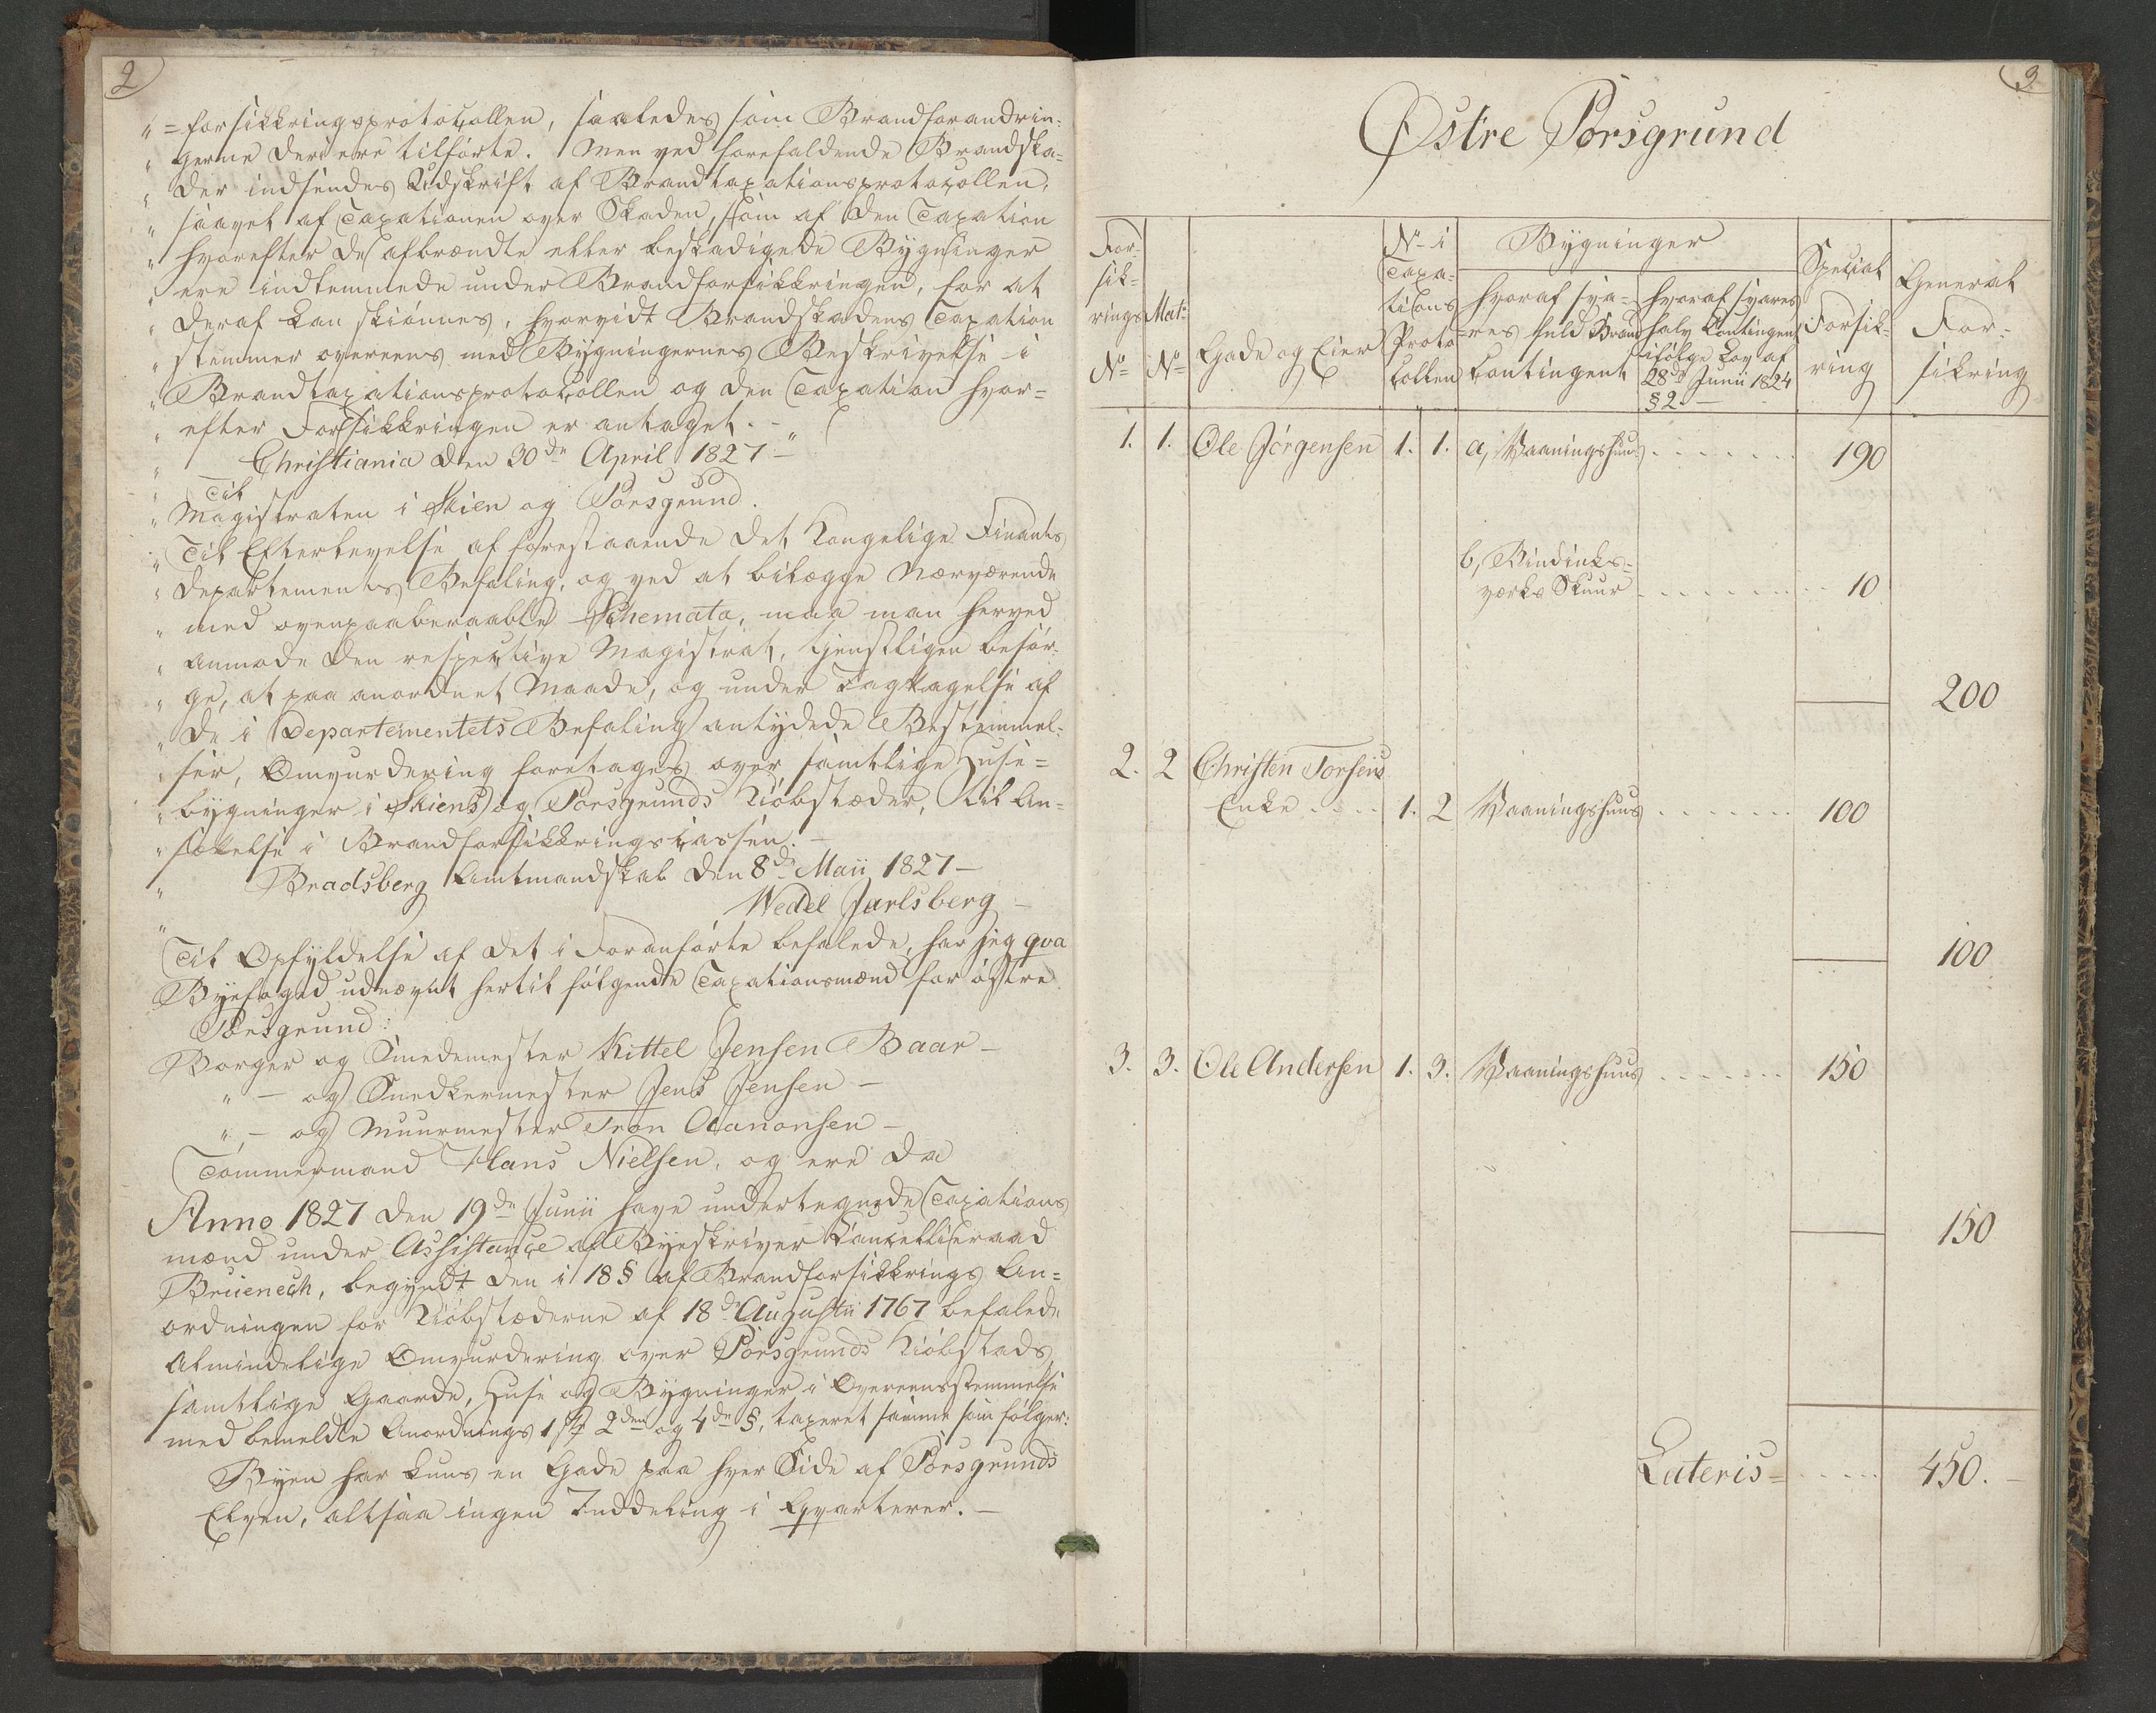 2
" =forsikkringsprotocollen, saaledes som Brandforandrin-
" gerne deri ere tilførte. Men ved forefaldende Brandska-
" der indsendes Udskrift af Brandtaxationsprotocollen,
" saavel af Taxationen over Skaden, som af den Taxation
" hvorefter de afbrændte eller beskadigede Bygninger
" ere indlemmede under Brandforsikkringen, for at
" deraf kan skiønnes, hvorvidt Brandskadens Taxation
" stemmer overeens med Bygningernes Beskrivelse i
" Brandtaxationsprotocollen og den Taxation hvor=
" efter Forsikkringen er antaget. -
" Christiania den 30de April 1827 -
" Til
" Magistraten i Skien og Porsgrund.
" Til Efterlevelse af forestaaende det Kongelige Finants
" Departements Befaling, og ved at bilægge nærværende
" med ovenpaaberaabte Schemata, maa man herved
" anmode den respective Magistrat, tjenstligen besør-
" ge, at paa anordnet Maade, og under Iagttagelse af
" de i Departementets Befaling antydede Bestemmel-
" ser, Omvurdering foretages over samtlige Huse=
" bygninger i Skiens og Porsgrunds Kiøbstæder, til An-
" sættelse i Brandforsikkringscassen. -
" Bradsberg Amtmandskab den 8de Maii 1827 -
" Wedel Jarlsberg -
Til Opfyldelse af det i Foranførte befalede, har jeg qva
Byefoged udnævnt hertil følgende Taxationsmænd for østre
Porsgrund:
Borger og Smedemester Kittel Jensen Baar -
" - og Snedkermester Jens Jensen -
" - og Muurmester Tron Aanonsen -
Tømmermand Hans Nielsen, og ere da
Anno 1827 den 19de Junii have undertegnede Taxations
mænd under Assistance af Byeskriver Cancelliraad
Bruenech, begyndt den i 18 § af Brandforsikkrings An=
ordningen for Kiøbstæderne af 18de Augustii 1767 befalede
almindelige Omvurdering over Porsgrunds Kiøbstads
samtlige Gaarde, Huse og Bygninger i Overeensstemmelse
med bemeldte Anordnings 1ste 2den og 4de §, taxeret samme som følger:
Byen har kuns en Gade paa hver Side af Porsgrunds
Elven, altsaa ingen Inddeling i Qvarterer. -
3
Østre Porsgrund
For-
sik-
rings
No
Mat:
No
Gade og Eier
No i
Taxa-
tions
Proto
collen
Bygninger
hvoraf sva-
res fuld Brand
Contingent
hvoraf svares
halv Contingent
ifølge Lov af
28de Junii 1824
§ 2. -
Special
Forsik-
ring
General
For-
sikring
1. 1. Ole Jørgensen 1. 1. a, Vaaningshuus ....... 190
b, Bindinks-
værks Skuur ........ 10
200
2. 2 Christen Torsens
Enke .... 1. 2 Vaaningshuus ....... 100
100
3. 3. Ole Andersen 1. 3. Vaaningshuus ....... 150
150
Lateris= ..... 450. -